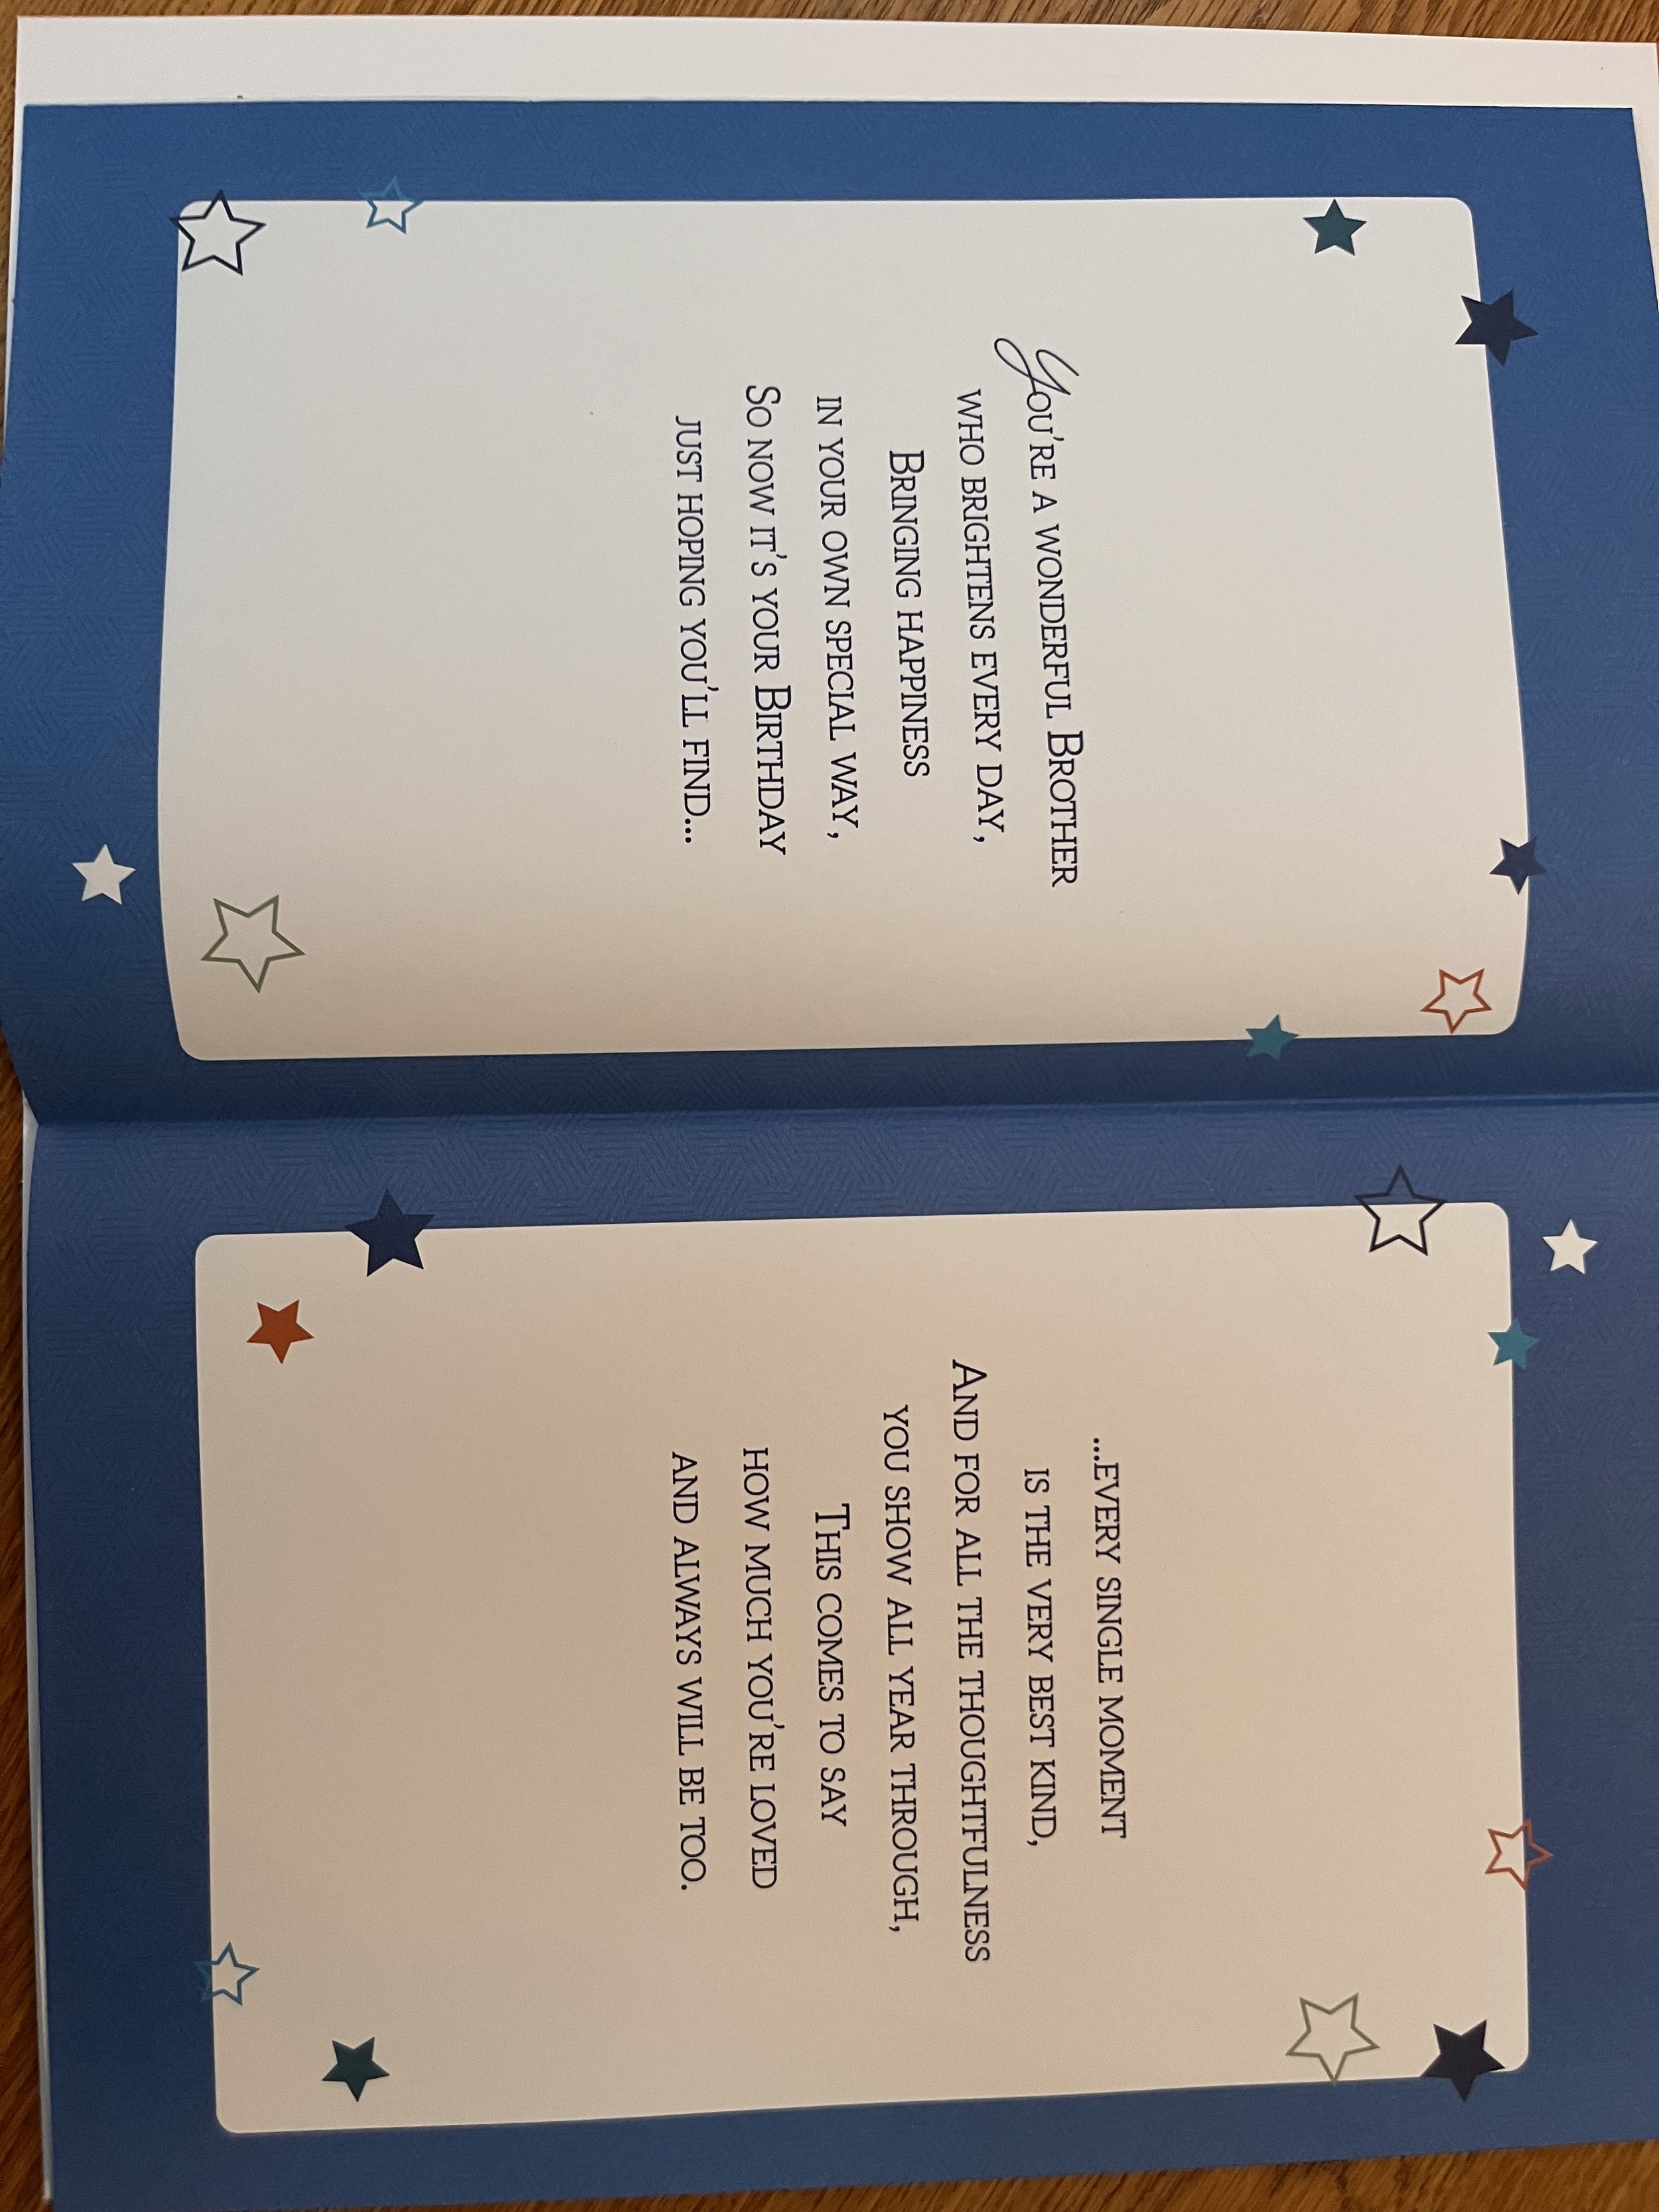 You're a wonderful Brother
who brightens every day,
Bringing happiness
in your own special way,
So now it's your Birthday
just hoping you'll find...
...every single moment
is the very best kind,
And for all the thoughtfulness
you show all year through,
This comes to say
how much you're loved
and always will be too.